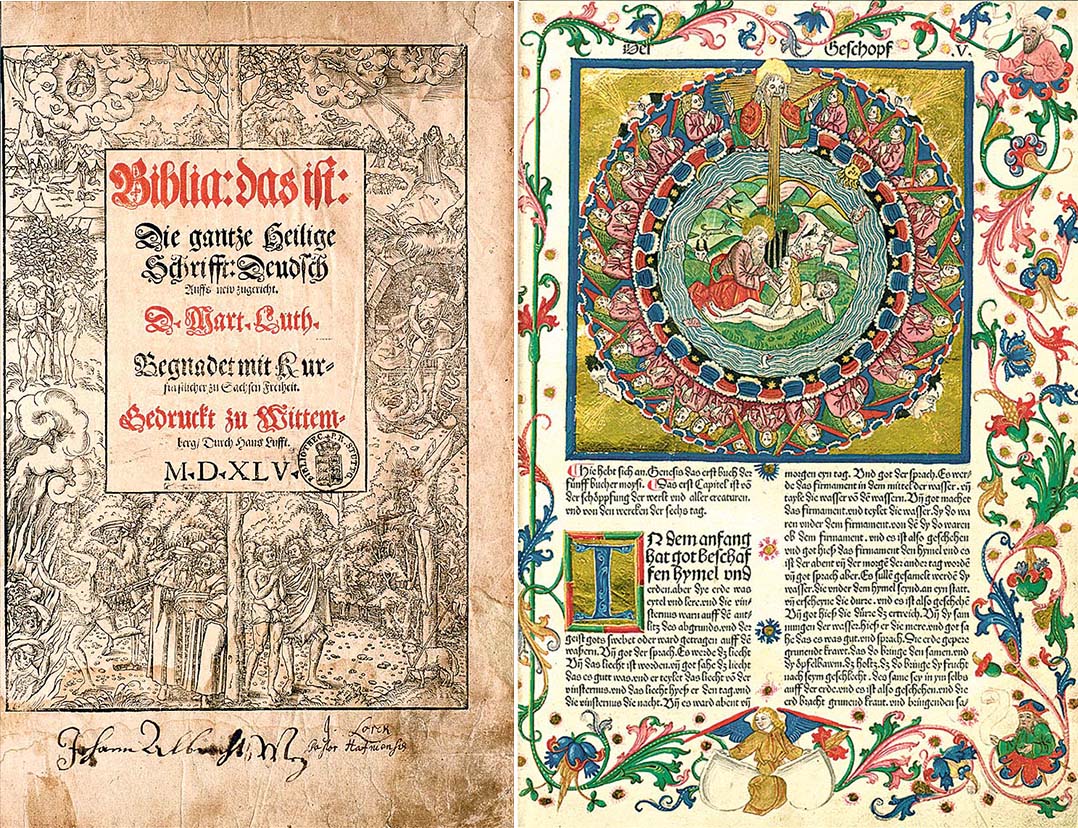 Biblia: das ist:
Die gantze Heilige
Schrifft: Deudsch
Auffs new zugericht.
D. Mart. Luth.
Begnadet mit Kur-
fürstlicher zu Sachsen Freiheit.
Gedruckt zu Wittem-
berg/ Durch Hans Lufft.
M.D.XLV.
Johann Albrecht
J. Lorck
Pastor Hafniensis
Geschopf
.V.
Hie hebt sich an. Genesis das erst buch der
fünff bucher moysi. Das erst Capitel ist vō
der schöpffung der werlt vnd aller creaturen.
vnd von den wercken der sechs tag.
IN dem anfang
hat got beschaf
fen hymel vnd
erden. aber dye erde was
eytel vnd lere. vnd die vin
sternus warn auff dē ant
litz des abgrunds. vnd der
geist gots swebet oder ward getragen auff dē
wassern. Vn̄ got der sprach. Es werde dz liecht
Vn̄ das liecht ist worden. vn̄ got sahe dz liecht
das es gut was. vnd er teylet das liecht vō der
vinsternus. vnd das liecht hyeß er den tag. vnd
die vinsternus die nacht. Vn̄ es ward abent vn̄
morgen eyn tag. Vnd got der sprach. Es wer
de das firmament in dem mittel der wasser. vn̄
tayle die wasser vō dē wassern. Vn̄ got machet
das firmament. vnd teylet die wasser. dy do wa
ren vnder dem firmament. von dē dy do waren
ob dem firmament. vnd es ist also geschehen
vnd got hieß das firmament den hymel vnd es
ist der abent vn̄ der morgē der ander tag wordē
vn̄ got sprach aber. Es sülle gesamelt werdē dy
wasser. die vnder dem hymel seynd. an eyn statt.
vn̄ erscheyne die dürre. vnd es ist also geschehē
Vn̄ got hieß die dürre dz ertreich. Vn̄ dy sam
nungen der wasser. hieß er die mere. vnd got sa
he das es was gut. vnd sprach. Die erde gepere
grunende kraut. das do bringe den samen. vnd
dy öpfelbawm. dz holtz. dz do bringe dy frucht
nach seym geschlecht. des same sey in ym selbs
auff der erde. vnd es ist also geschehen. vnd die
erd bracht grunend kraut. vnd bringenden sa